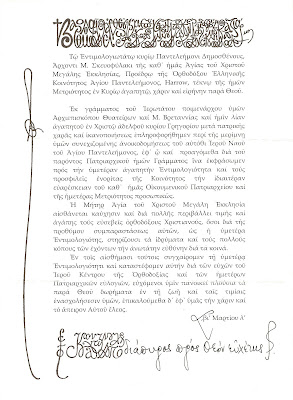 Τῷ Ἐντιμολογιωτάτῳ κυρίῳ Παντελεήμονι Δημοσθένους,
Ἄρχοντι Μ. Σκευοφύλακι τῆς καθ᾽ ἡμᾶς Ἁγίας τοῦ Χριστοῦ
Μεγάλης Ἐκκλησίας, Προέδρῳ τῆς Ὀρθοδόξου Ἑλληνικῆς
Κοινότητος Ἁγίου Παντελεήμονος, Harrow, τέκνῳ τῆς ἡμῶν
Μετριότητος ἐν Κυρίῳ ἀγαπητῷ, χάριν καὶ εἰρήνην παρὰ Θεοῦ.
Ἐκ γράμματος τοῦ Ἱερωτάτου ποιμενάρχου ὑμῶν
Ἀρχιεπισκόπου Θυατείρων καὶ Μ. Βρεταννίας καὶ ἡμῖν λίαν
ἀγαπητοῦ ἐν Χριστῷ ἀδελφοῦ κυρίου Γρηγορίου μετὰ πατρικῆς
χαρᾶς καὶ ἱκανοποιήσεως ἐπληροφορήθημεν περὶ τῆς μερίμνῃ
ὑμῶν συνεχιζομένης ἀνοικοδομήσεως τοῦ αὐτόθι Ἱεροῦ Ναοῦ
τοῦ Ἁγίου Παντελεήμονος, ἐφ᾽ ᾧ καὶ προαγόμεθα διὰ τοῦ
παρόντος Πατριαρχικοῦ ἡμῶν Γράμματος ἵνα ἐκφράσωμεν
πρὸς τὴν ὑμετέραν ἀγαπητὴν Ἐντιμολογιότητα καὶ τοὺς
προσφιλεῖς ἐνορίτας τῆς Κοινότητος τὴν ἰδιαιτέραν
εὐαρέσκειαν τοῦ καθ᾽ ἡμᾶς Οἰκουμενικοῦ Πατριαρχείου καὶ
τῆς ἡμετέρας Μετριότητος προσωπικῶς.
Ἡ Μήτηρ Ἁγία τοῦ Χριστοῦ Μεγάλη Ἐκκλησία
αἰσθάνεται καύχησιν καὶ διὰ πολλῆς περιβάλλει τιμῆς καὶ
ἀγάπης τοὺς εὐσεβεῖς ὀρθοδόξους Χριστιανούς, ὅσοι διὰ τῆς
προθύμου συμπαραστάσεως αὐτῶν, ὡς ἡ ὑμετέρα
Ἐντιμολογιότης, στηρίζουσι τὰ ἱδρύματα καὶ τοὺς πολλοὺς
κόπους τῶν ἐχόντων τὴν ἀνωτάτην εὐθύνην διὰ τὰ κοινά.
Ἐν τοῖς αἰσθήμασι τούτοις συγχαίρομεν τῇ ὑμετέρᾳ
Ἐντιμολογιότητι καὶ καταστέφομεν αὐτὴν διὰ τῶν εὐχῶν τοῦ
Ἱεροῦ Κέντρου τῆς Ὀρθοδοξίας καὶ τῶν ἡμετέρων
Πατριαρχικῶν εὐλογιῶν, εὐχόμενοι ὑμῖν πανοικεὶ πλούσια τὰ
παρὰ Θεοῦ δωρήματα ἐν τῇ ζωῇ καὶ ταῖς τιμίαις
ἐνασχολήσεσιν ὑμῶν, ἐπικαλούμεθα δ᾽ ἐφ᾽ ὑμᾶς τὴν χάριν καὶ
τὸ ἄπειρον Αὐτοῦ ἔλεος.
Μαρτίου λ´
διάπυρος πρὸς Θεὸν εὐχέτης